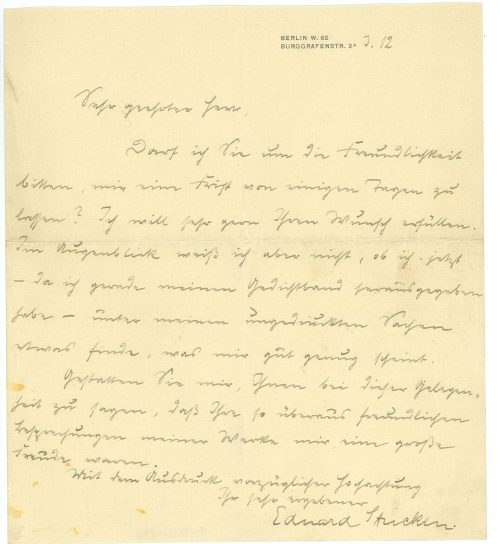 BERLIN W. 62
BURGGRAFENSTR. 2ᴬ
Sehr geehrter Herr,
Darf ich Sie um die Freundlichkeit
bitten, mir eine Frist von einigen Tagen zu
lassen? Ich will sehr gern Ihren Wunsch erfüllen.
Im Augenblick weiß ich aber nicht, ob ich jetzt
– da ich gerade meinen Gedichtband herausgegeben
habe – unter meinen ungedruckten Sachen
etwas finde, was mir gut genug scheint.
Gestatten Sie mir, Ihnen bei dieser Gelegen-
heit zu sagen, daß Ihre so überaus freundlichen
Besprechungen meiner Werke mir eine große
Freude waren.
Mit dem Ausdruck vorzüglicher Hochachtung
Ihr sehr ergebener
Eduard Stucken.